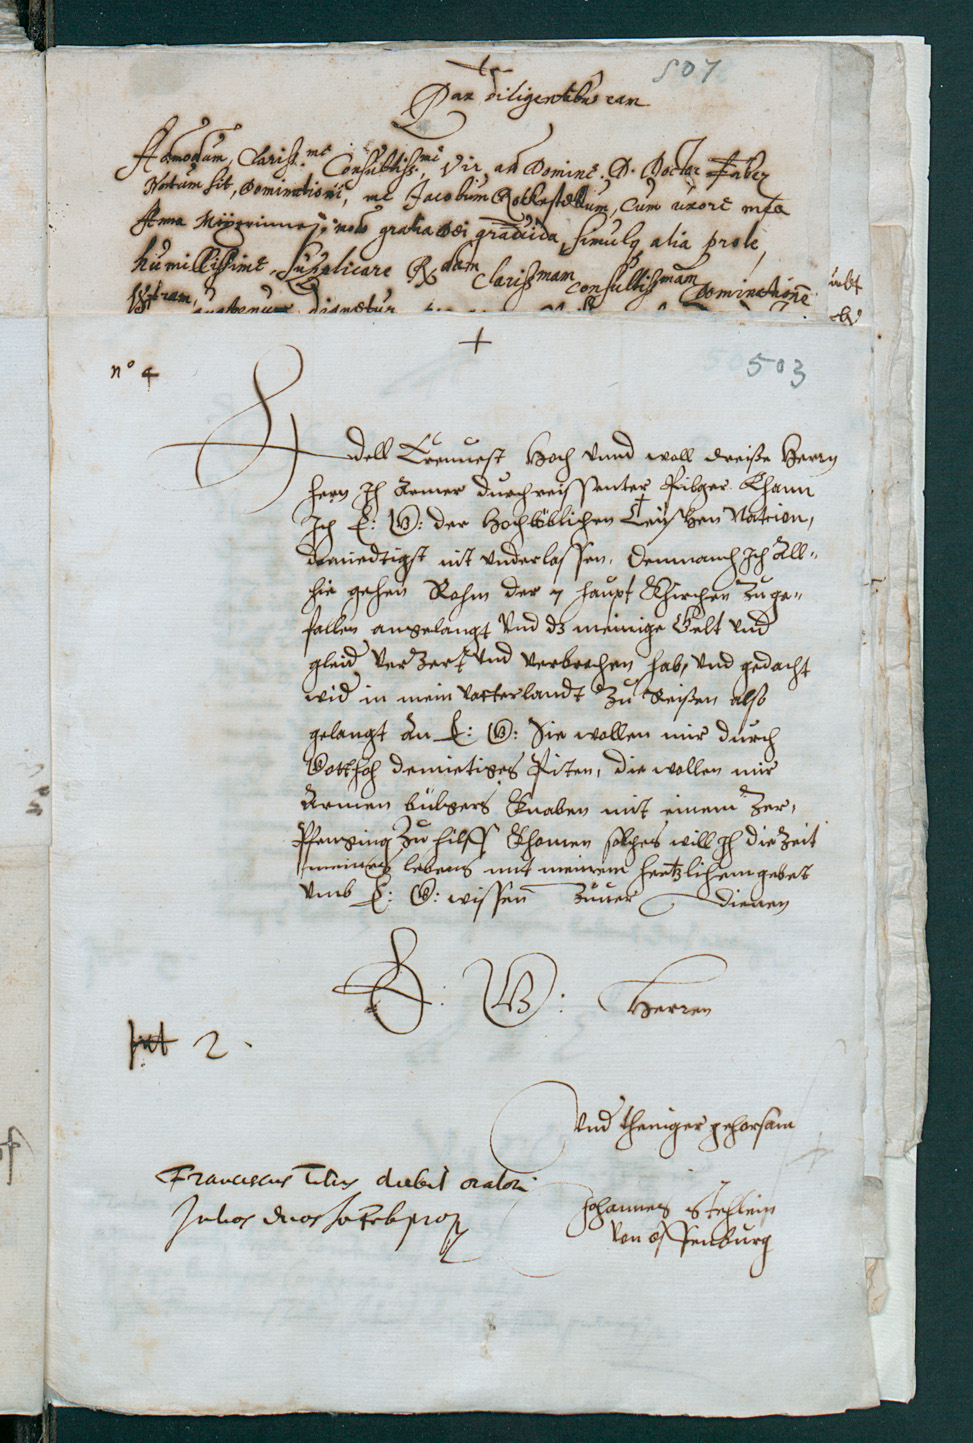 507
Pax diligentibus eam
Admodum, Clariss.me Consultiss.me, Vir, ac Domine D. Doctor Faber
Notum sit, Dominationi, me Jacobum Rolkestellum, Cum uxore mea
Anna gratia Dei gravida, simulq alia prole,
humillissime, Supplicare Rdam Clarissmam consultissmam Dominationē
Vstram, quatenus dignetur
+
nº 4
503
Edell Erenuest Hoch vnnd woll Weiße Herrn
hern Ich Armer durchreissenter Pilger Khann
Ich E: G: der Hochlöblichen Teütschen Nation,
demiedtigst nit vnderlassen, demnach Ich All-
hie gehen Rohm der 7 haupt Khirchen zu ge-
fallen angelangt vnd dz meinige Gelt vnd
gleid verzert vnd verbrochen hab, vnd gedacht
wid in mein vatterlandt zu Reißen also
gelangt An E: G: Sie wollen mir durch
Gott hoh demietiges Piten, die wollen mir
Armen bülgers Knaben mit einem Zer-
Pfenging zu hilff Khomen solches will Ich die Zeit
meines lebens mit meinem hertzlichem gebet
vmb E: G: wissen zuuer dienen
E: G: Herren
2.
Vnd theniger gehorsam
Franciscus Tilius dabit oratori
Julios duos
Johannes Stehlein
von Offenburg